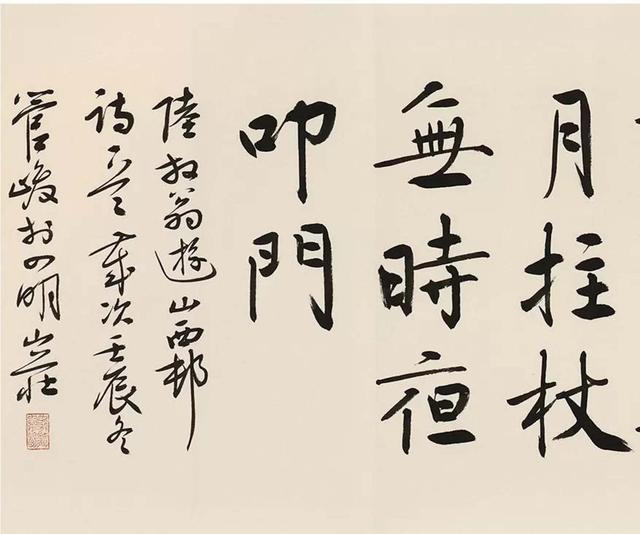 月拄杖
無時夜
叩門
陸放翁遊山西邨
詩一首歲次壬辰冬
管峻於四明山莊